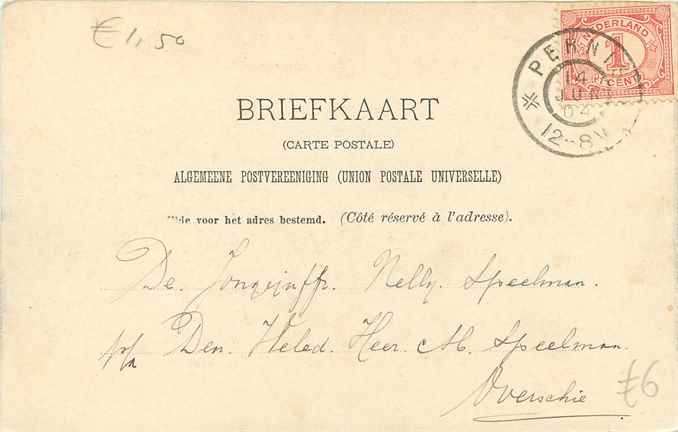 €1,50
NEDERLAND
1
CENT
PERNIS
14
JUN
04
12-8V
BRIEFKAART
(CARTE POSTALE)
ALGEMEENE POSTVEREENIGING (UNION POSTALE UNIVERSELLE)
Zijde voor het adres bestemd. (Côté réservé à l'adresse).
De. Jongejuffr. Nelly. Speelman.
p/a Den. Weled. Heer. M. Speelman.
Overschie
€6